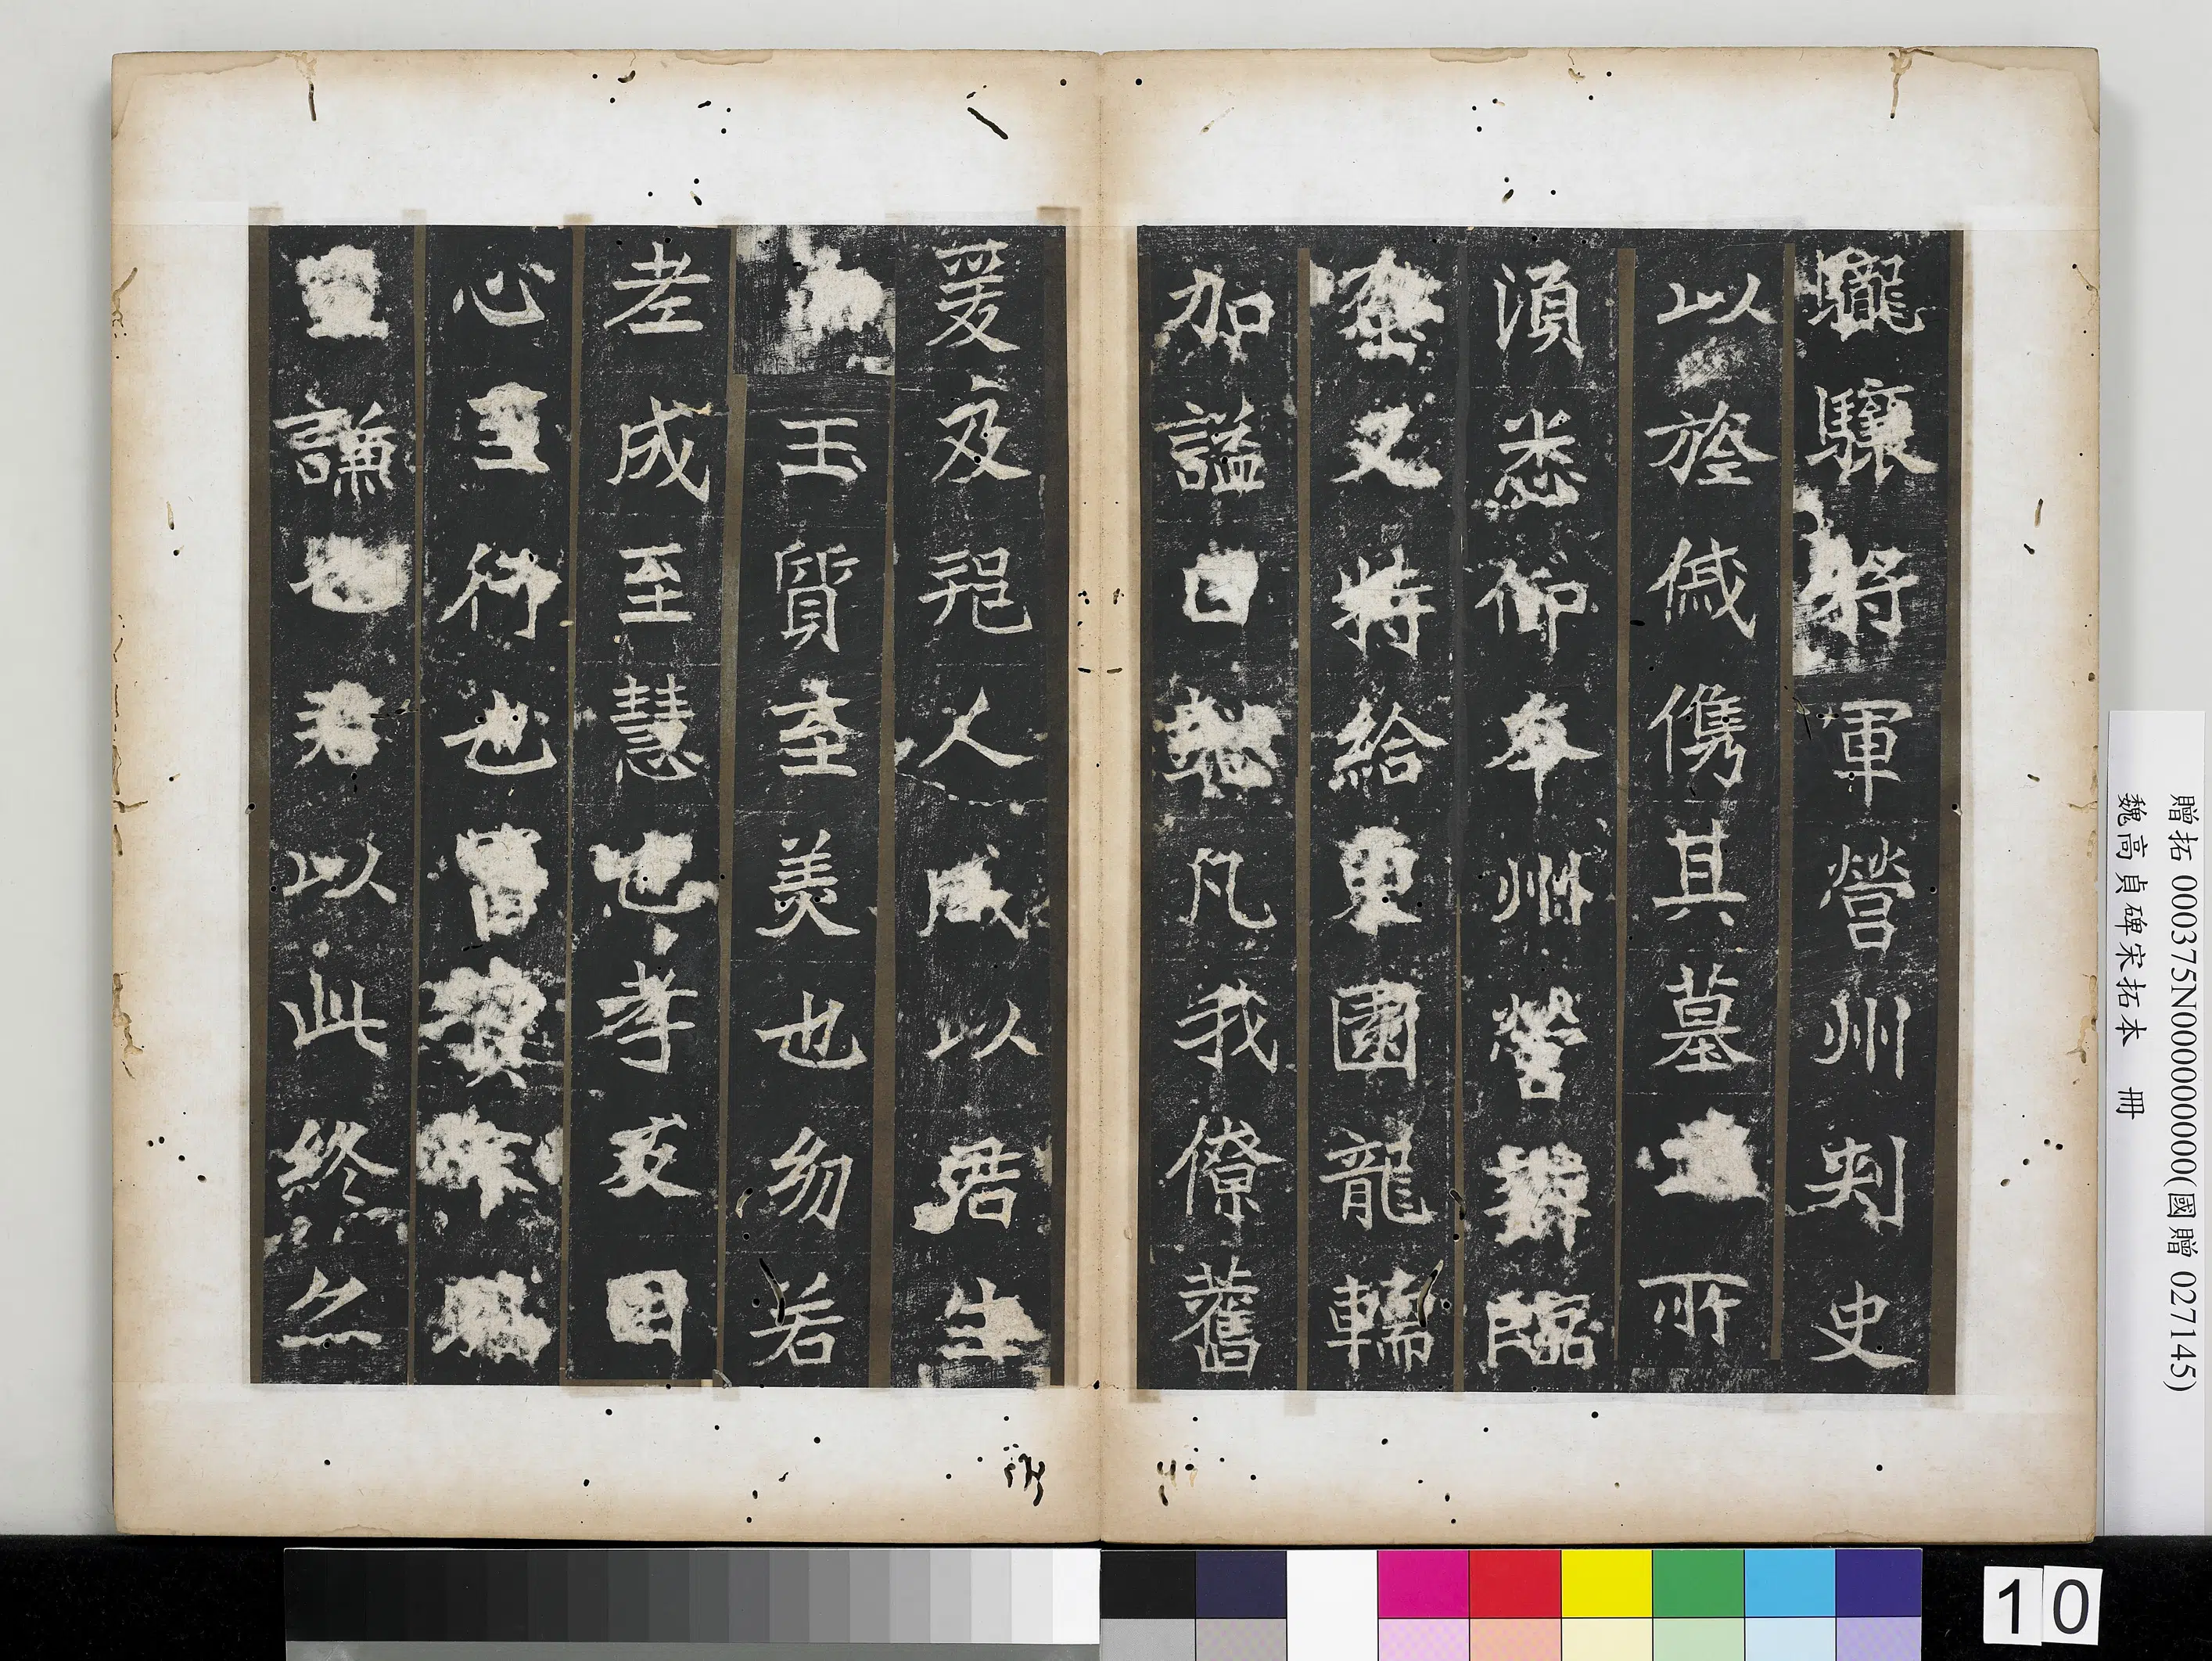 驤驤將軍營州刺史
以㫌儁儁其墓所
須悉仰本州營辦臨
葬又特給東園轜
加謚曰懿凡我僚舊
爰及邦人咸以君生
玉質至美也幼若
孝成至慧也孝友因
心至行也
謙也君以此終然
贈拓 000375N000000000(國贈 027145)
魏高貞碑宋拓本 冊
10